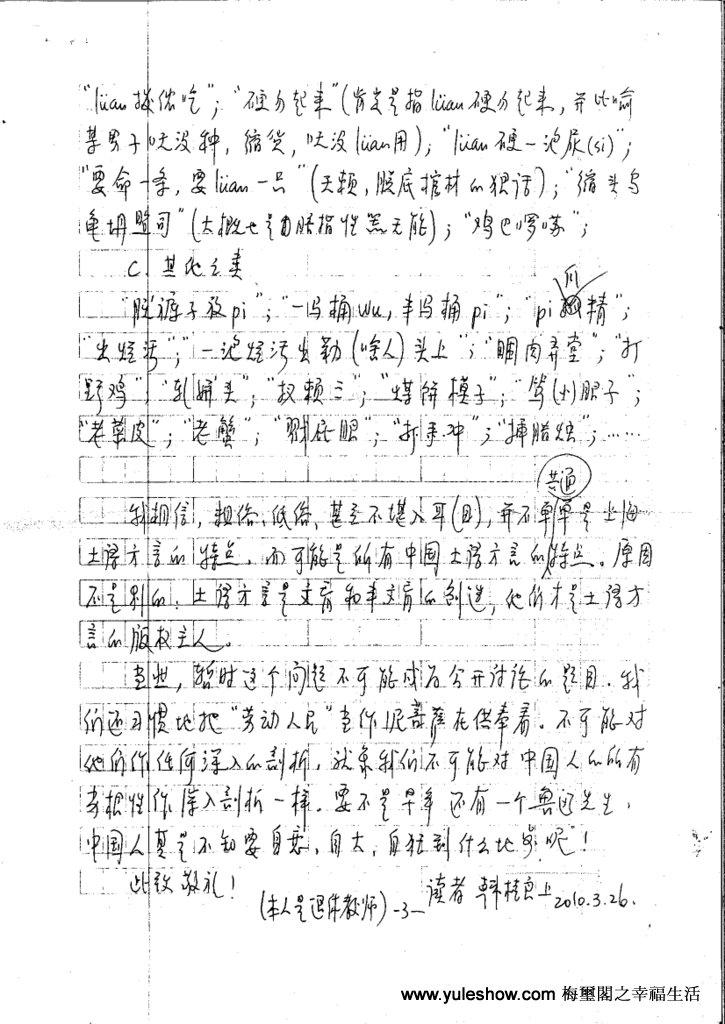 "lüan拔侬吃"；"硬勿起来"（肯定是指lüan硬勿起来，并比喻
某男子呒没种，缩货，呒没lüan用）；"lüan硬一泡尿(si)"；
"要命一条，要lüan一只"（无赖，脱底棺材的狠话）；"缩头乌
龟"（大概也是暗指性无能）；"鸡巴啰嗦"；
C. 其他之类
"脱裤子放pi"；"一吗捅wu，半吗捅pi"；"pi爪精"；
"出烂污"；"一泡烂污出勒（啥人）头上"；"睏肉弄堂"；"打
野鸡"；"轧姘头"；"叔赖三"；"煤饼模子"；"胆子"；
"老草皮"；"老蟹"；"戳屁眼"；"打手冲"；"捧腊烛"；……
我相信，粗俗、低俗，甚至不堪入耳(目)，并不单单是上海
土语方言的特点，而可能是所有中国土语方言的共通特点。原因
不是别的：土语方言是文盲和半文盲的创造，他们才是土语方
言的版权主人。
当然，暂时这个问题不可能成为公开讨论的题目。我
们还习惯地把"劳动人民"当作泥菩萨在供奉着。不可能对
他们作任何深入的剖析，就象我们不可能对中国人的所有
劣根性作深入剖析一样。要不是早年还有一个鲁迅先生，
中国人真是不知要自恋，自大，自狂到什么地步呢！
此致敬礼！
（本人是退休教师） -3- 读者 韩桂良上 2010.3.26.
www.yuleshow.com 梅璽閣之幸福生活